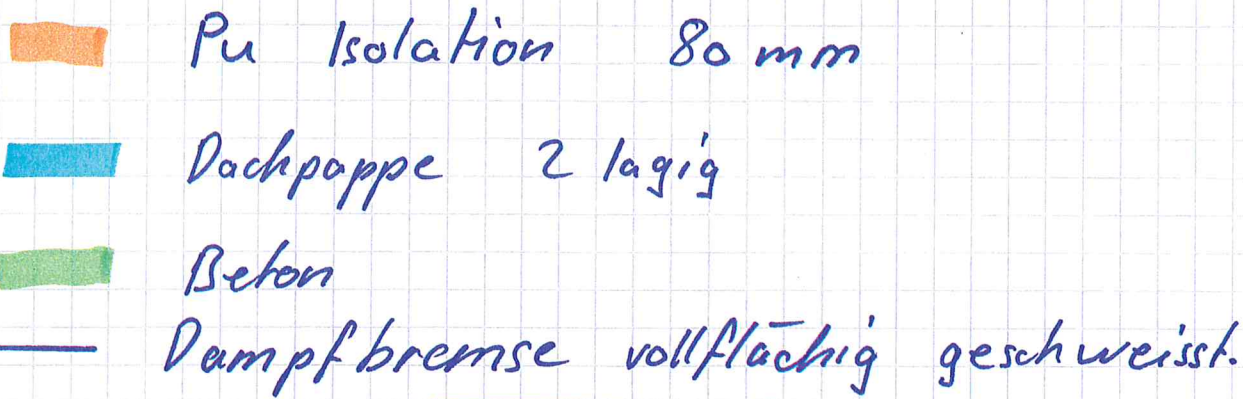 Pu Isolation 80 mm
Dachpappe 2 lagig
Beton
Dampfbremse vollflächig geschweisst.